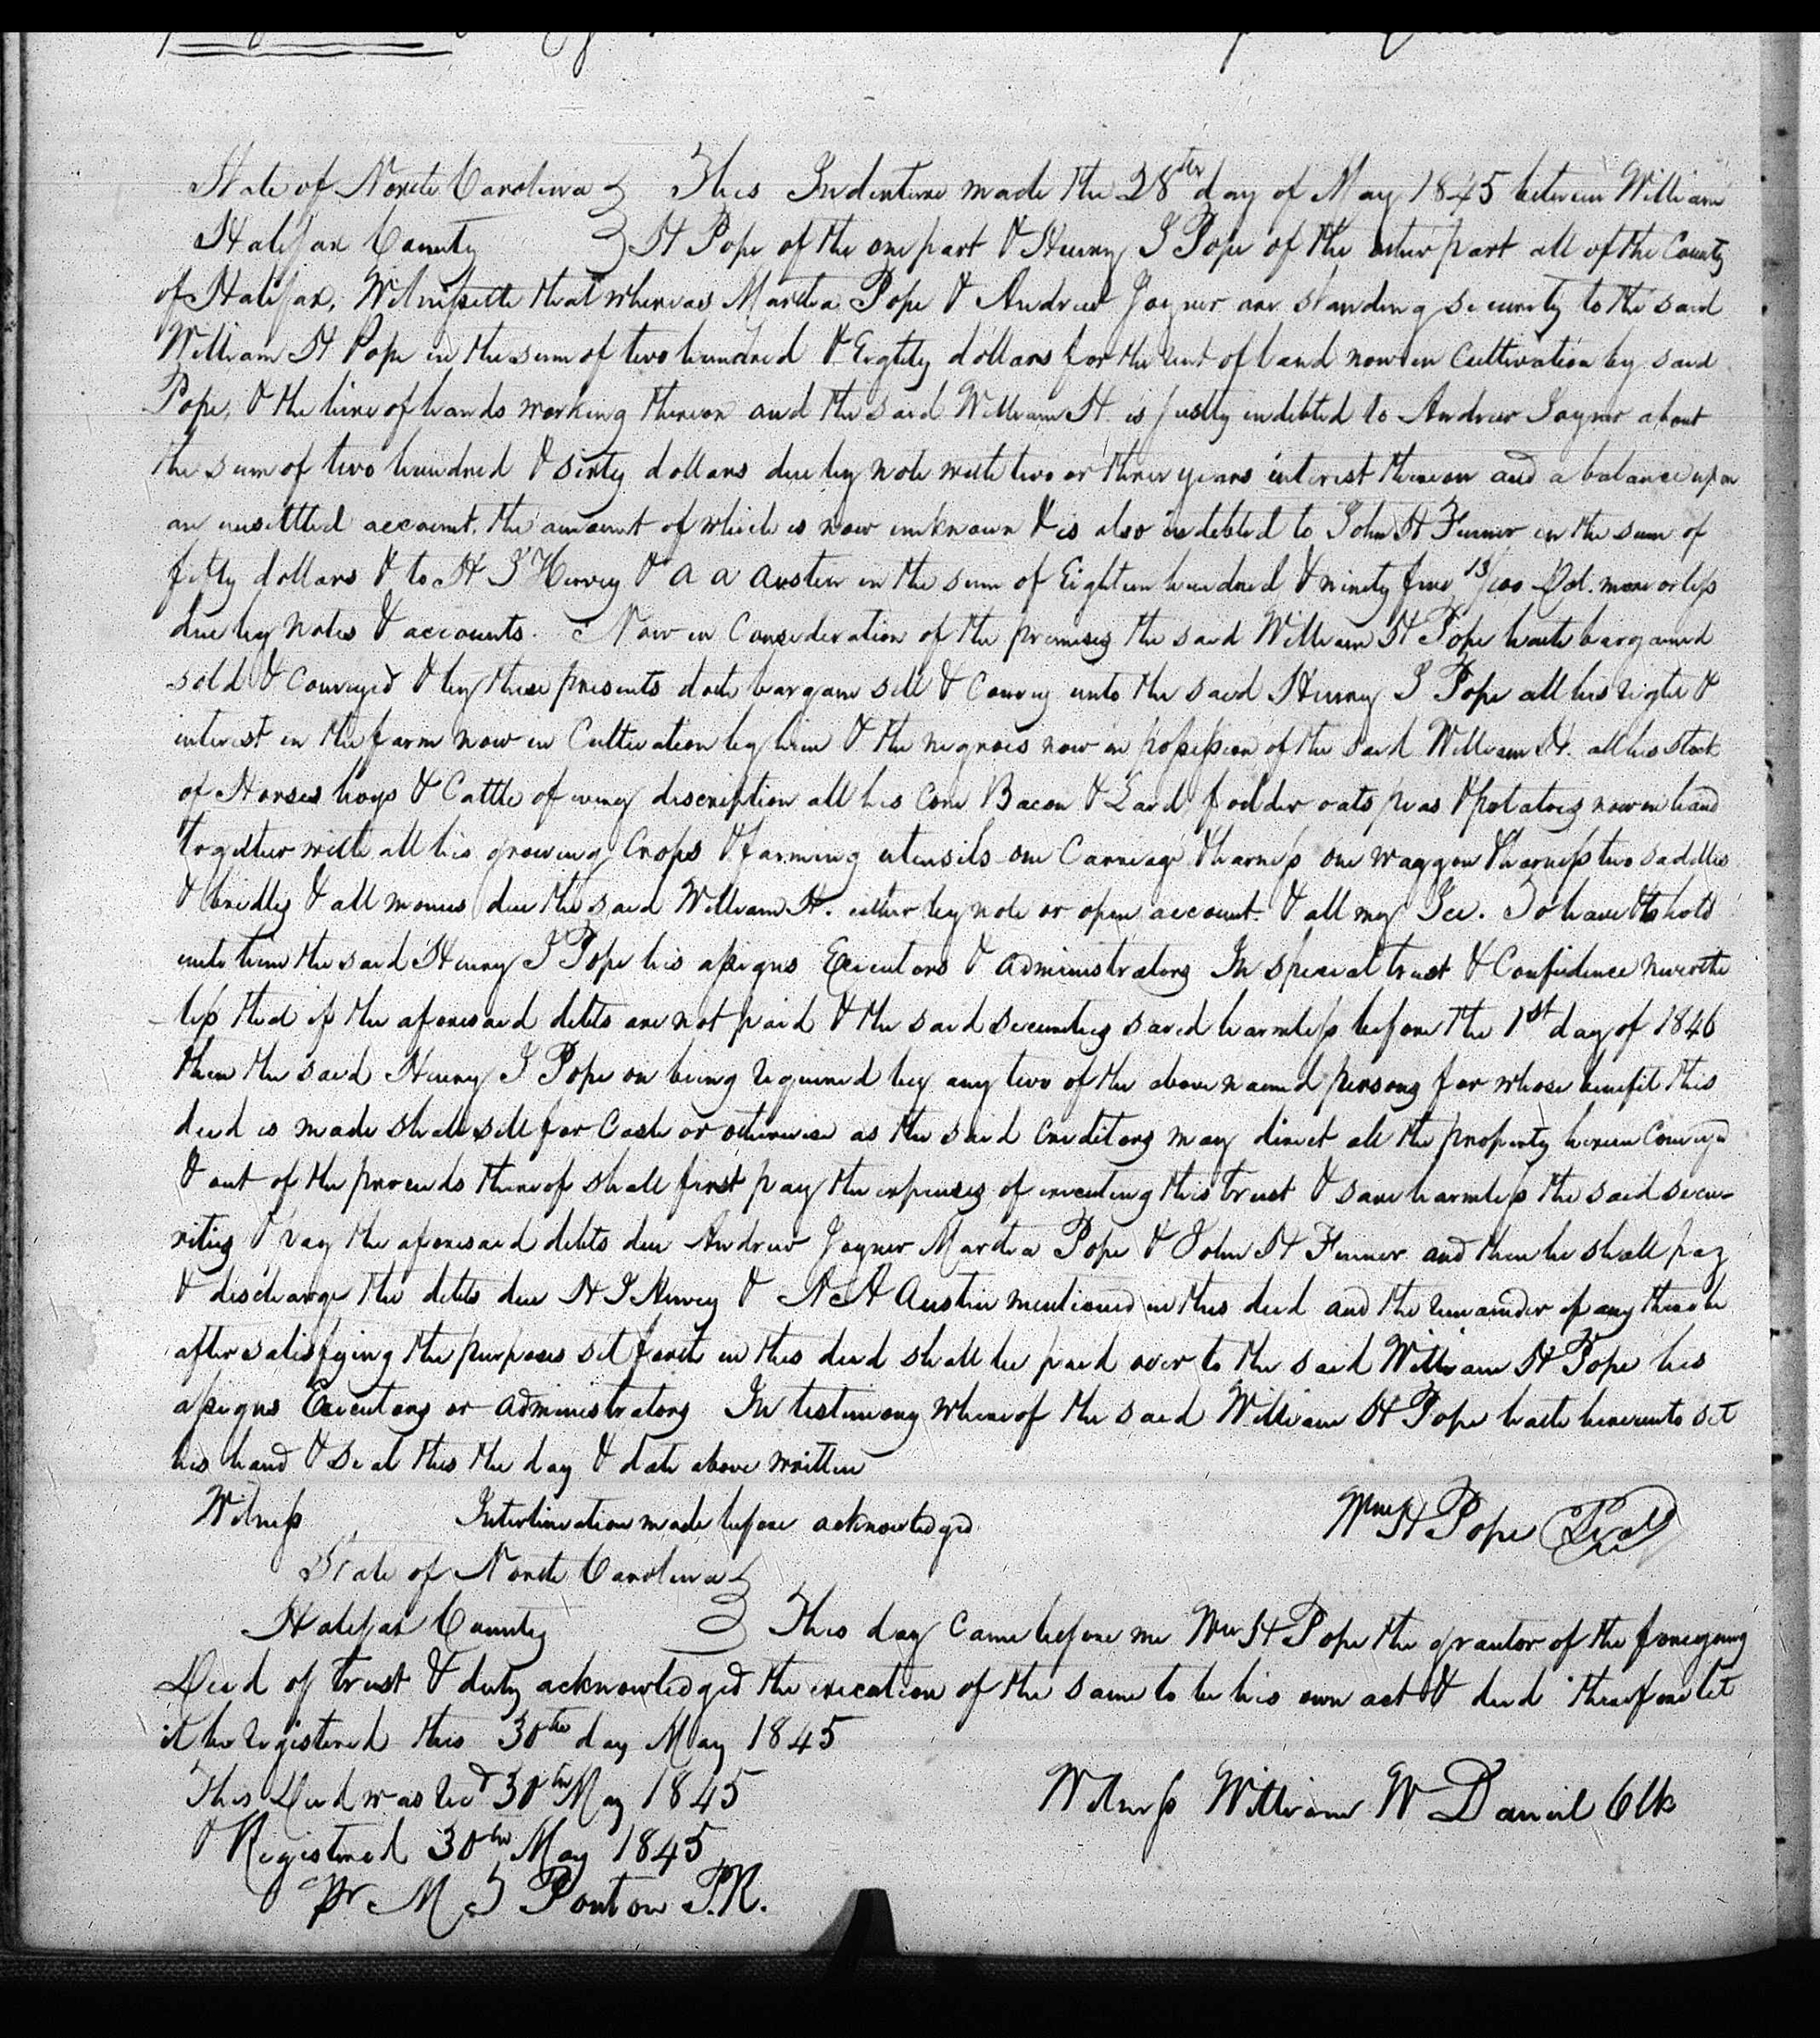 State of North Carolina } This Indenture made the 28th day of May 1845 between William
Halifax County } H Pope of the one part & Henry J Pope of the other part all of the County
of Halifax, Witnesseth that whereas Martha Pope & Andrew Joyner are standing security to the said
William H Pope in the sum of two hundred & Eightly dollars for the rent of land now in Cultivation by said
Pope, & the hire of hands working thereon and the said William H. is justly indebted to Andrew Joyner about
the sum of two hundred & sixty dollars due by note with two or three years interest thereon and a balance upon
an unsettled account, the amount of which is now unknown & is also indebted to John H Fenner in the sum of
fifty dollars & to H J Hervey & A A Austin in the sum of Eighteen hundred & ninety five 13/100 Dol. more or less
due by Notes & accounts. Now in Consideration of the premises the said William H Pope hath bargained
sold & Conveyed & by these presents doth bargain sell & Convey unto the said Henry J Pope all his right &
interest in the farm now in Cultivation by him & the negroes now in possession of the said William H. all his stock
of Horses hogs & Cattle of every discription all his Corn Bacon & Lard fodder oats peas & potatoes now on hand
together with all his growing Crops & farming utensils one Carriage & harness one waggon & harness two saddles
& bridles & all monies due the said William H. either by note or open account. & all my Ice. To have & to hold
unto him the said Henry J Pope his assigns Executors & administrators In special trust & Confidence neverthe
less that if the aforesaid debts are not paid & the said securities saved harmless before the 1st day of 1846
then the said Henry J Pope on being required by any two of the above named persons for whose benefit this
deed is made shall sell for Cash or otherwise as the said Creditors may direct all the property herein Conveyed
& out of the proceeds thereof shall first pay the expenses of executing this trust & save harmless the said secu-
rities & pay the aforesaid debts due Andrew Joyner Martha Pope & John H Fenner and then he shall pay
& discharge the debts due H J Hervey & A A Austin mentioned in this deed and the remainder if any there be
after satisfying the purposes set forth in this deed shall be paid over to the said William H Pope his
assigns Executors or administrators In testimony whereof the said William H Pope hath hereunto set
his hand & seal this the day & date above written
Witness Interlineation made before acknowledged Wm H Pope (Seal)
State of North Carolina }
Halifax County } This day Came before me Wm H Pope the grantor of the foregoing
Deed of trust & duly acknowledged the execution of the same to be his own act & deed therefore let
it be registered this 30th day May 1845
This Deed was recd 30th May 1845 Witness William W Daniel Clk
& Registered 30th May 1845
pr M T Ponton P.R.